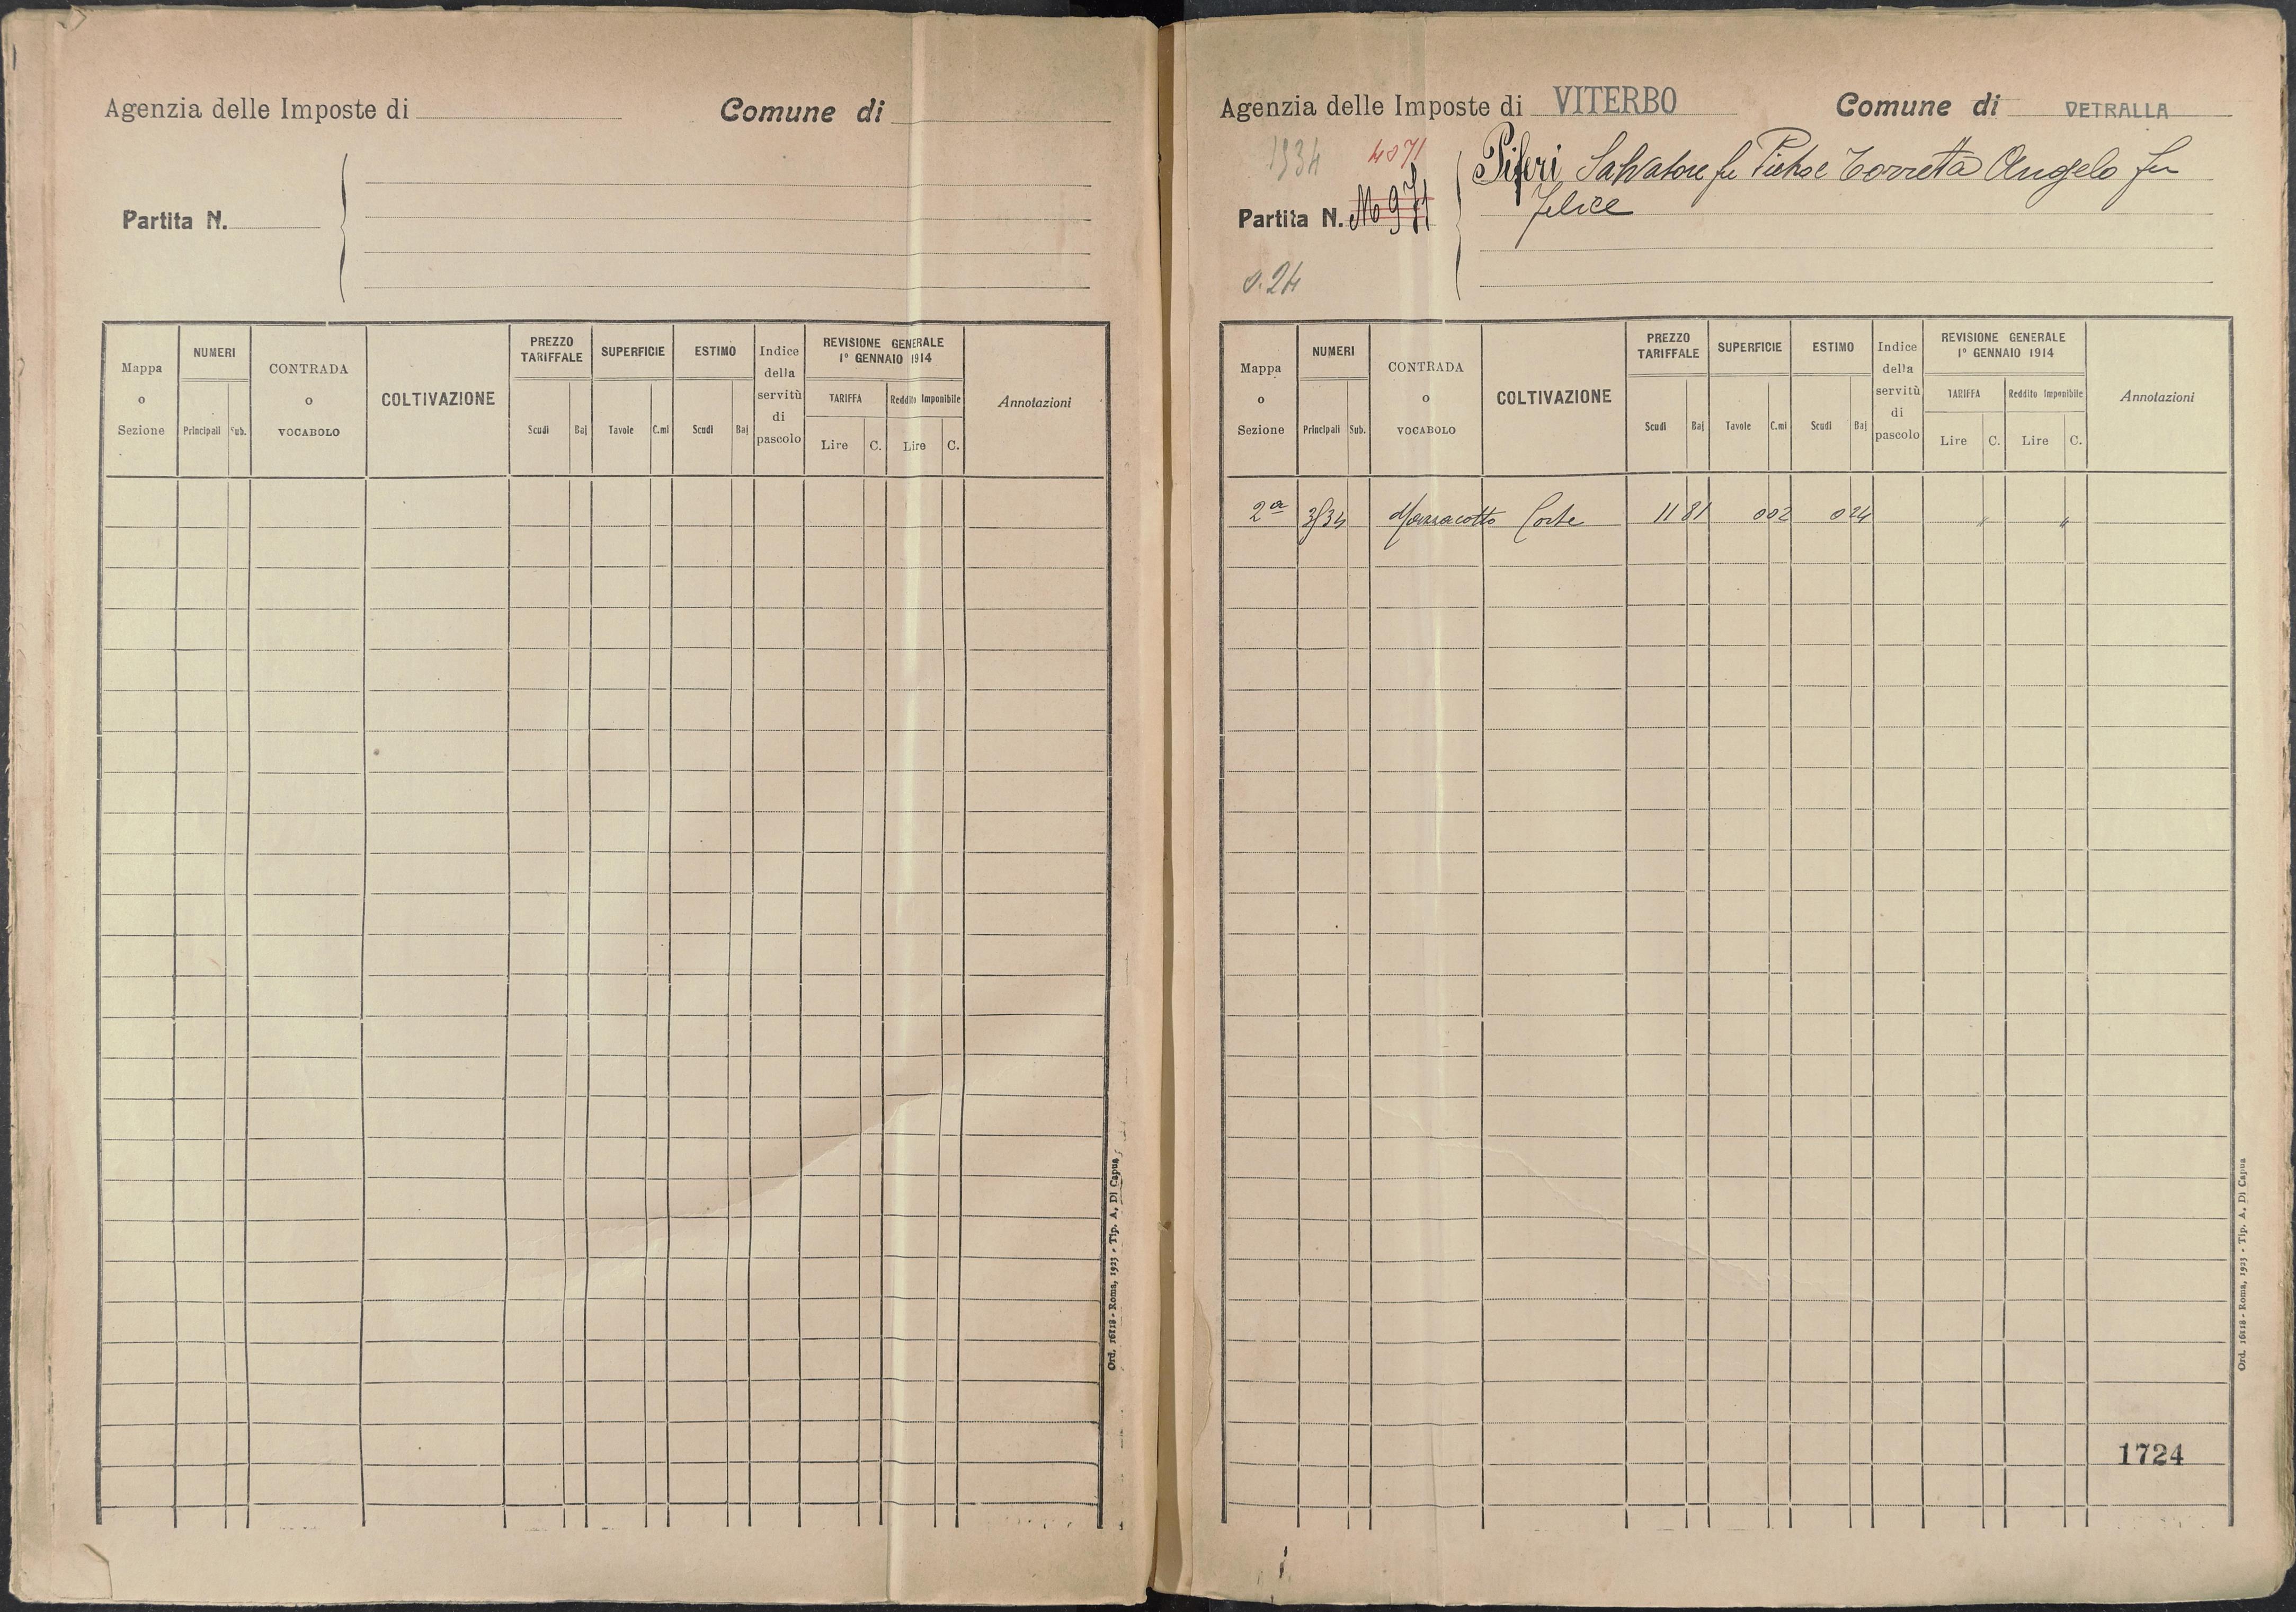 Agenzia delle Imposte di Comune di
Partita N.
Mappa o Sezione NUMERI CONTRADA o VOCABOLO COLTIVAZIONE PREZZO TARIFFALE SUPERFICIE ESTIMO Indice della servitù di pascolo REVISIONE GENERALE 1º GENNAIO 1914 Annotazioni
TARIFFA Reddito Imponibile
Principali Sub. Scudi Baj Tavole C.mi Scudi Baj Lire C. Lire C.
Ord. 16118 - Roma, 1923 - Tip. A. Di Capua
Agenzia delle Imposte di VITERBO Comune di VETRALLA
1934 4071
Piferi Salvatore fu Pietro e Torretta Angelo fu
Partita N. Felice
0.24
Mappa o Sezione NUMERI CONTRADA o VOCABOLO COLTIVAZIONE PREZZO TARIFFALE SUPERFICIE ESTIMO Indice della servitù di pascolo REVISIONE GENERALE 1º GENNAIO 1914 Annotazioni
TARIFFA Reddito Imponibile
Principali Sub. Scudi Baj Tavole C.mi Scudi Baj Lire C. Lire C.
2ª Mazzacotto Corte 11 81 0 02 0 24 " "
1724
Ord. 16118 - Roma, 1923 - Tip. A. Di Capua